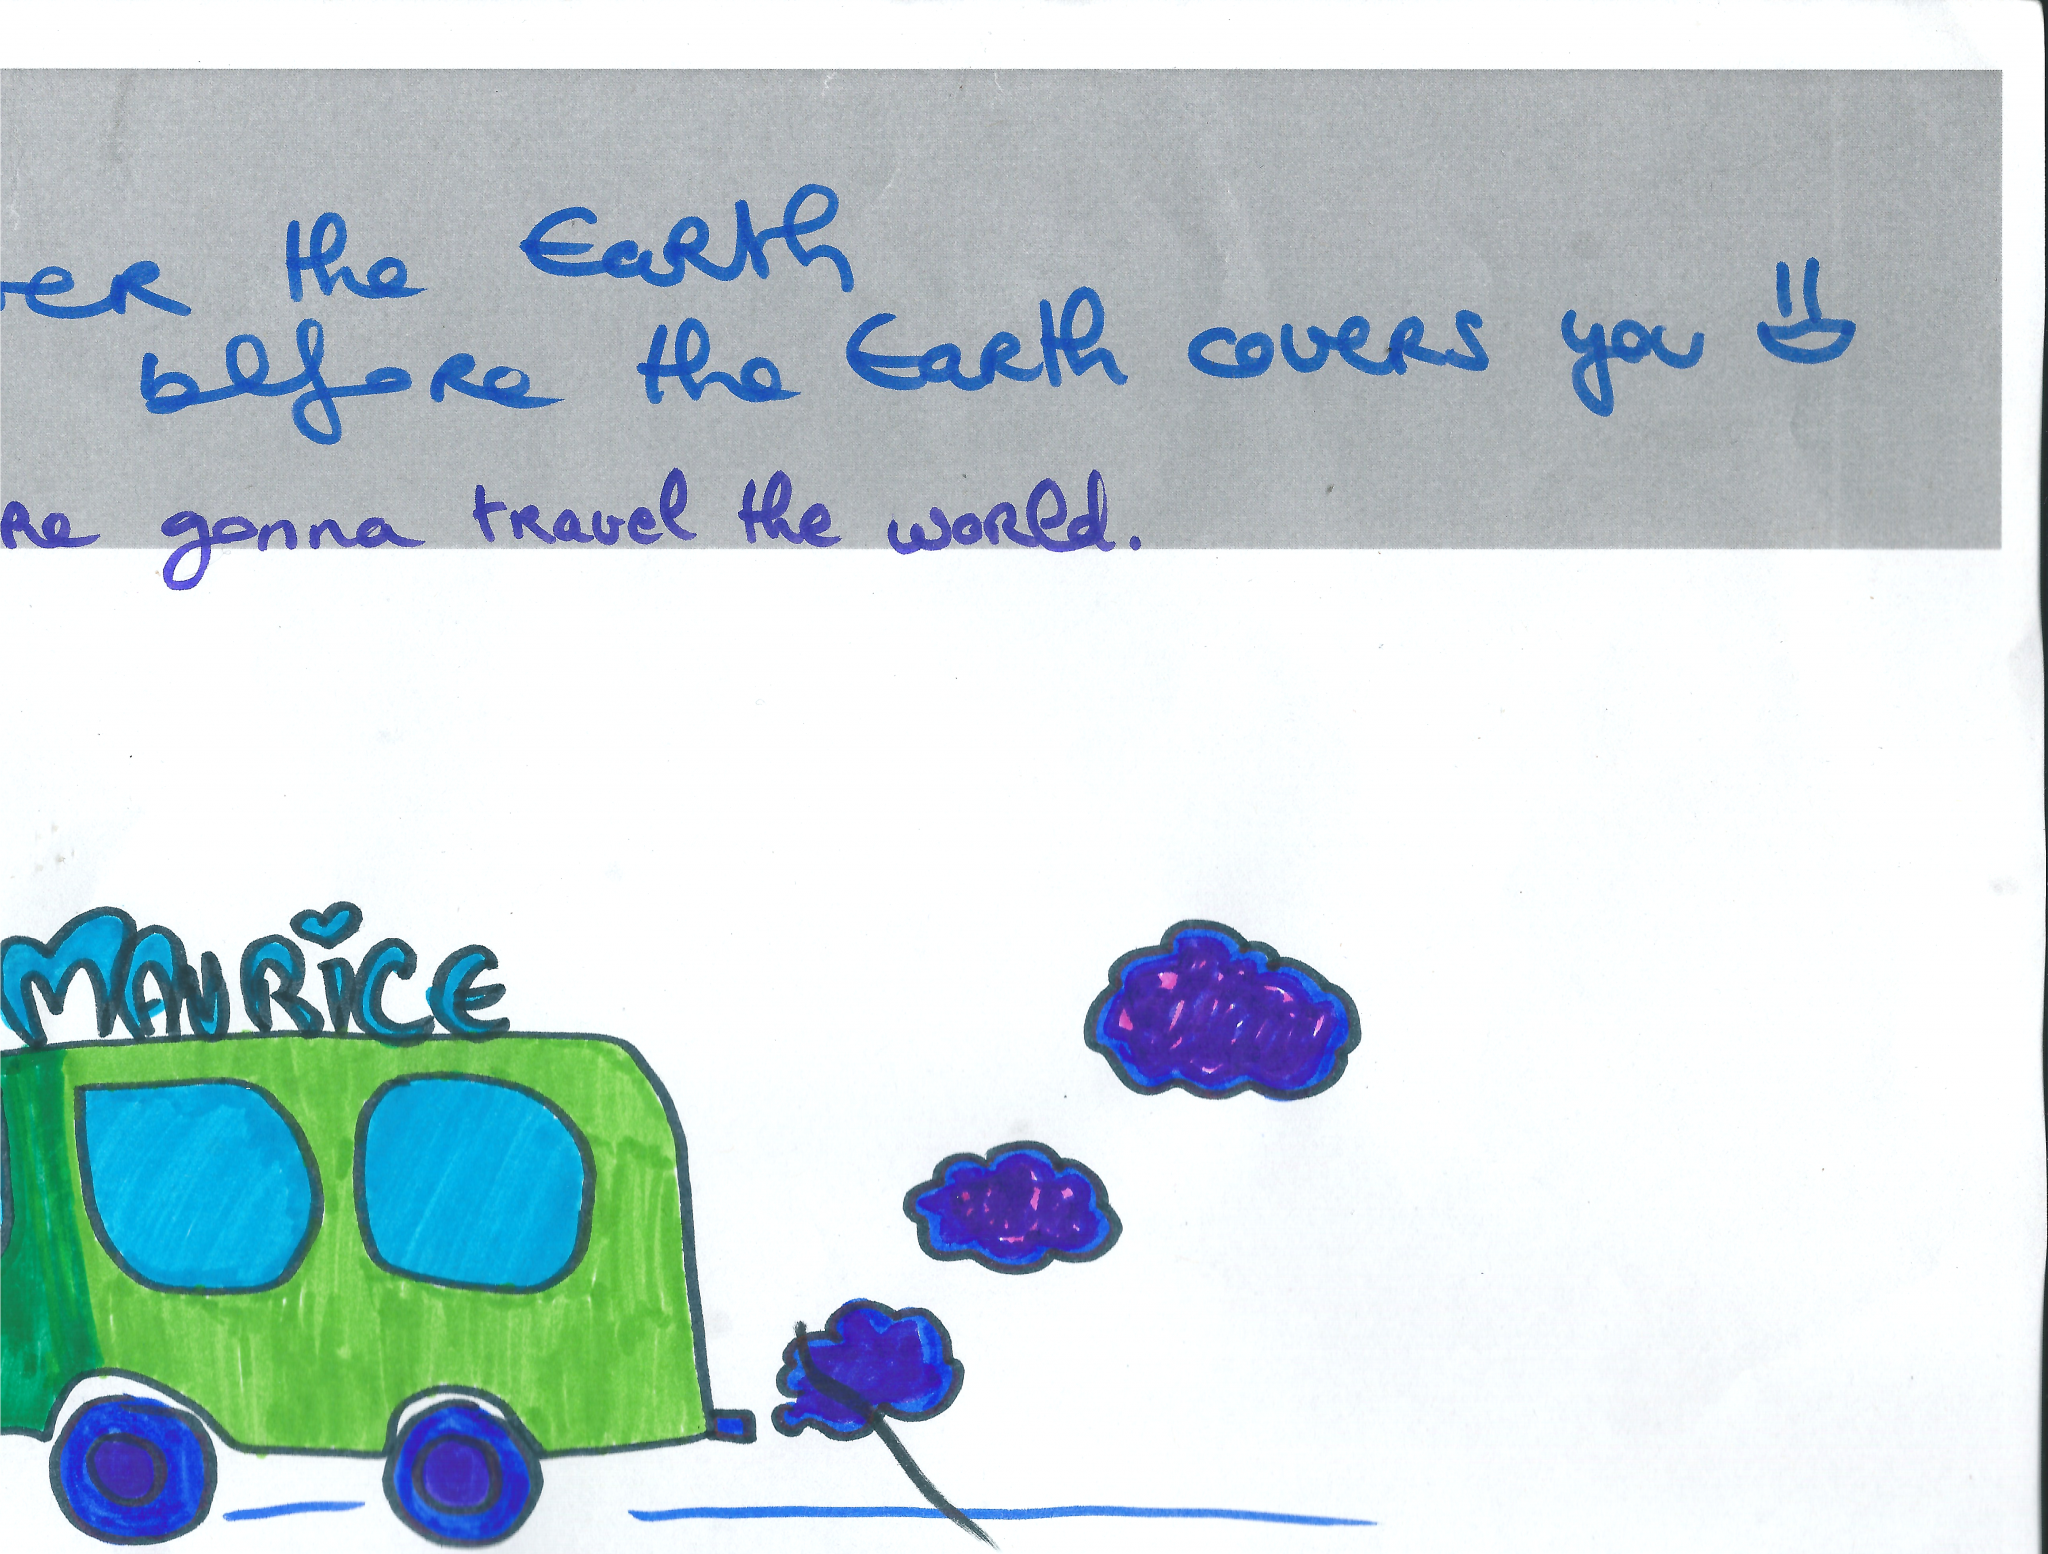 the Earth
before the Earth covers you
gonna travel the world.
MAURICE